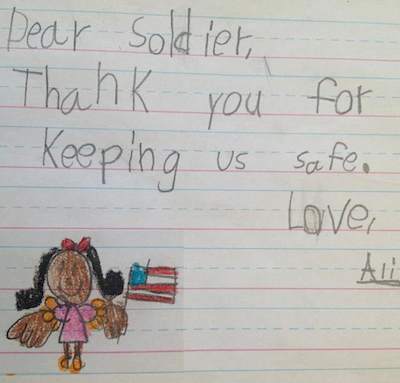 Dear Soldier,
Thank you for
Keeping us safe.
Love,
Ali